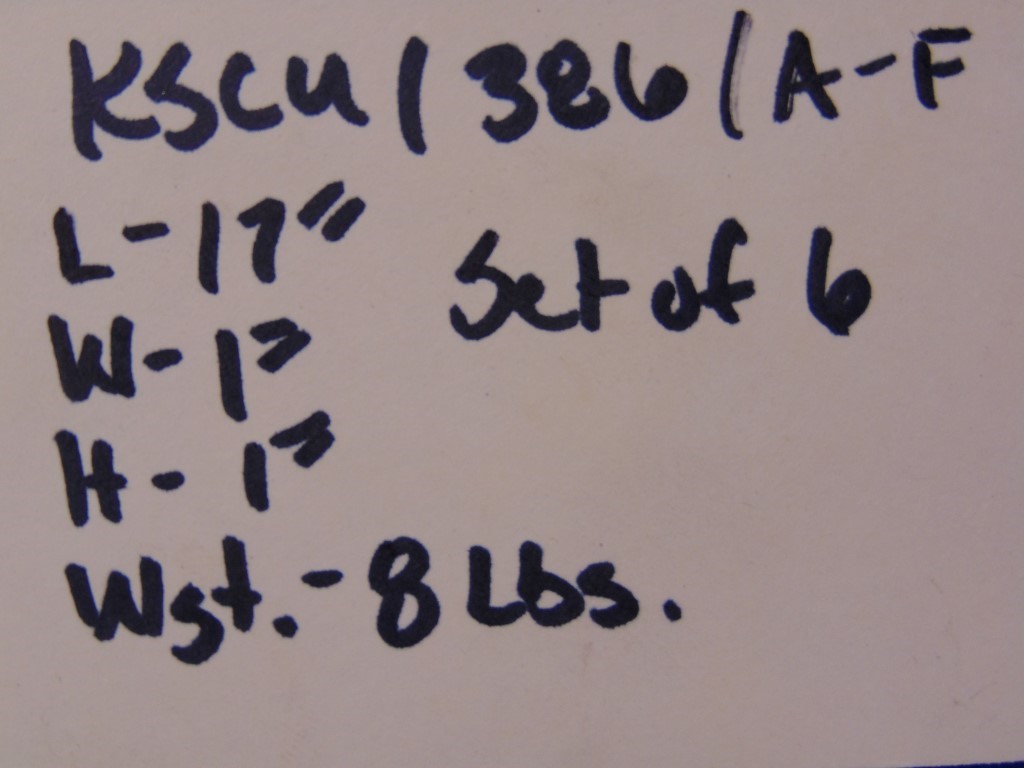 KSCU/386/A-F
L-17"
Set of 6
W-1"
H-1"
Wgt.-8 Lbs.